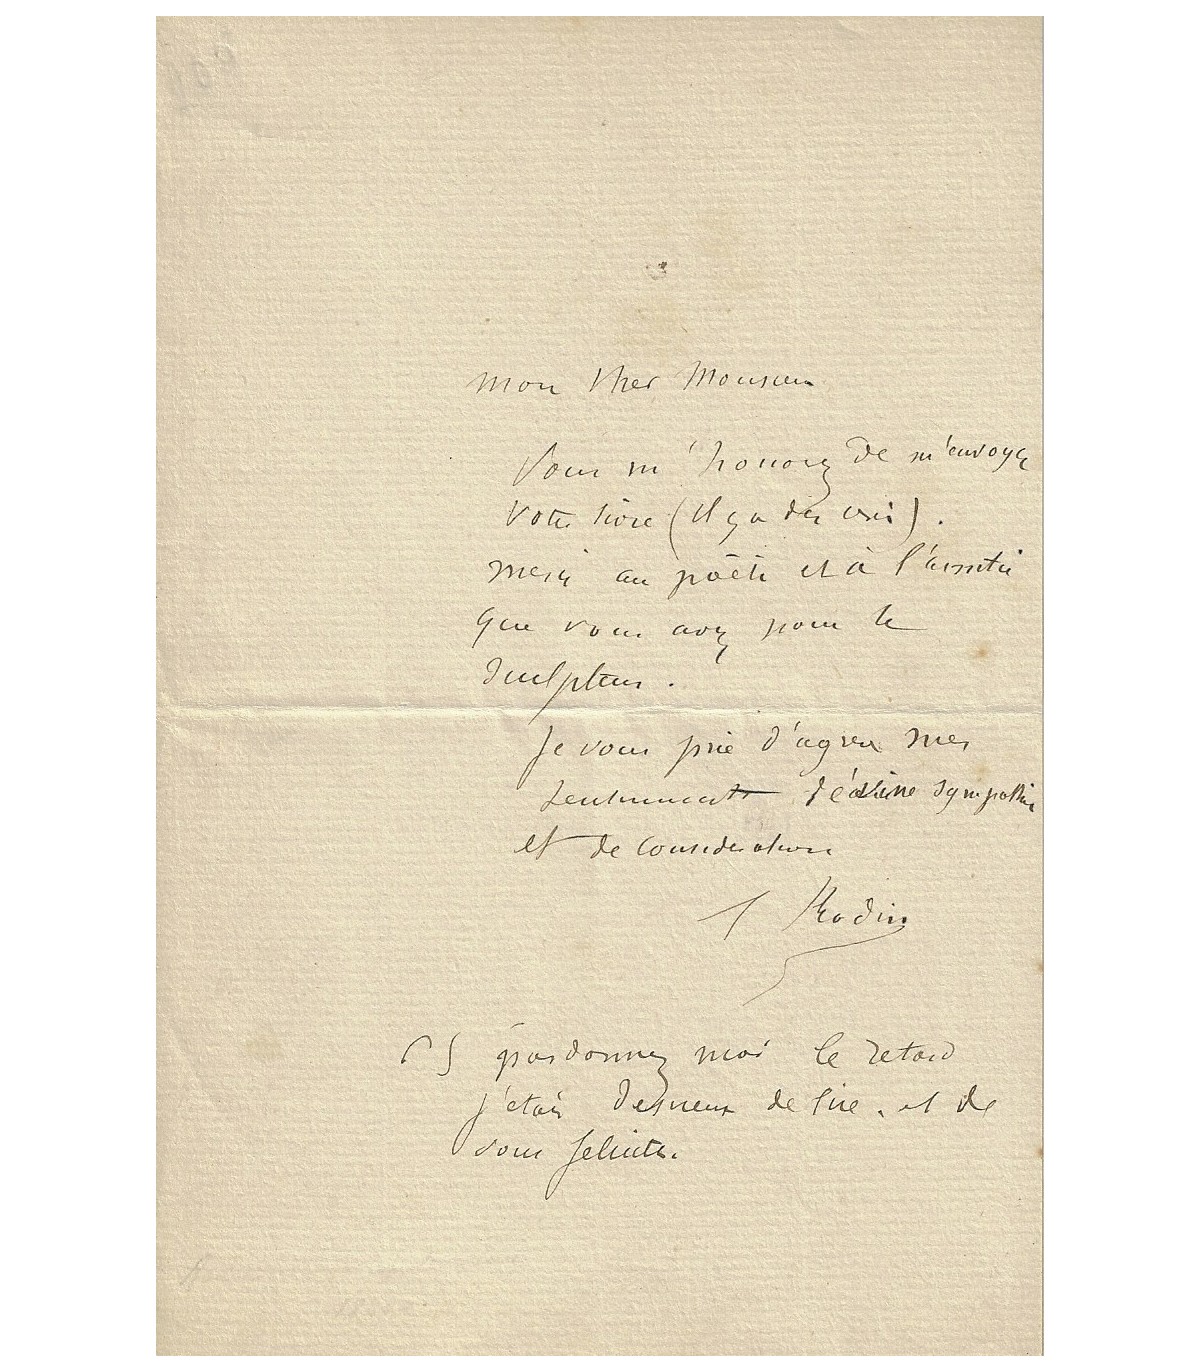 Mon cher Monsieur
Vous m'honorez de m'envoyer
votre livre (il y a des vers).
merci au poète et à l'amitié
que vous avez pour le
sculpteur.
Je vous prie d'agreer mes
sentiments de sympathie
et de consideration
Rodin
PS pardonnez moi le retard
j'etais desireux de lire, et de
vous feliciter.